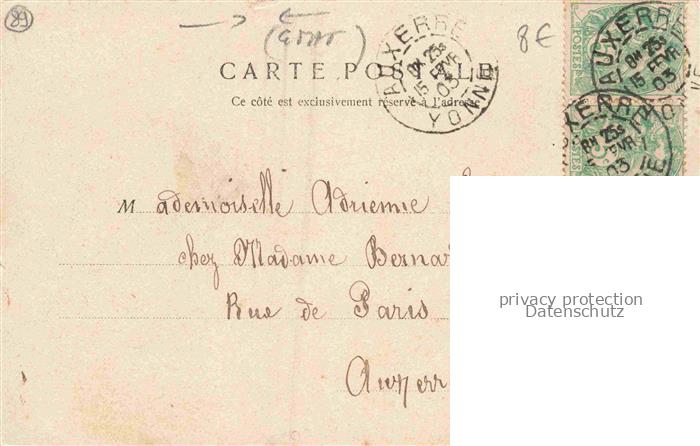 89
(état)
8€
CARTE POSTALE
Ce côté est exclusivement réservé à l'adresse
AUXERRE
8H 25s
15 FEVR
03
YONNE
AUXERRE
8H 25s
15 FEVR
03
POSTES
AUXERRE
8H 25s
FEVR
03
Mademoiselle Adrienne
chez Madame Berna
Rue de Paris
Auxerr
privacy protection
Datenschutz